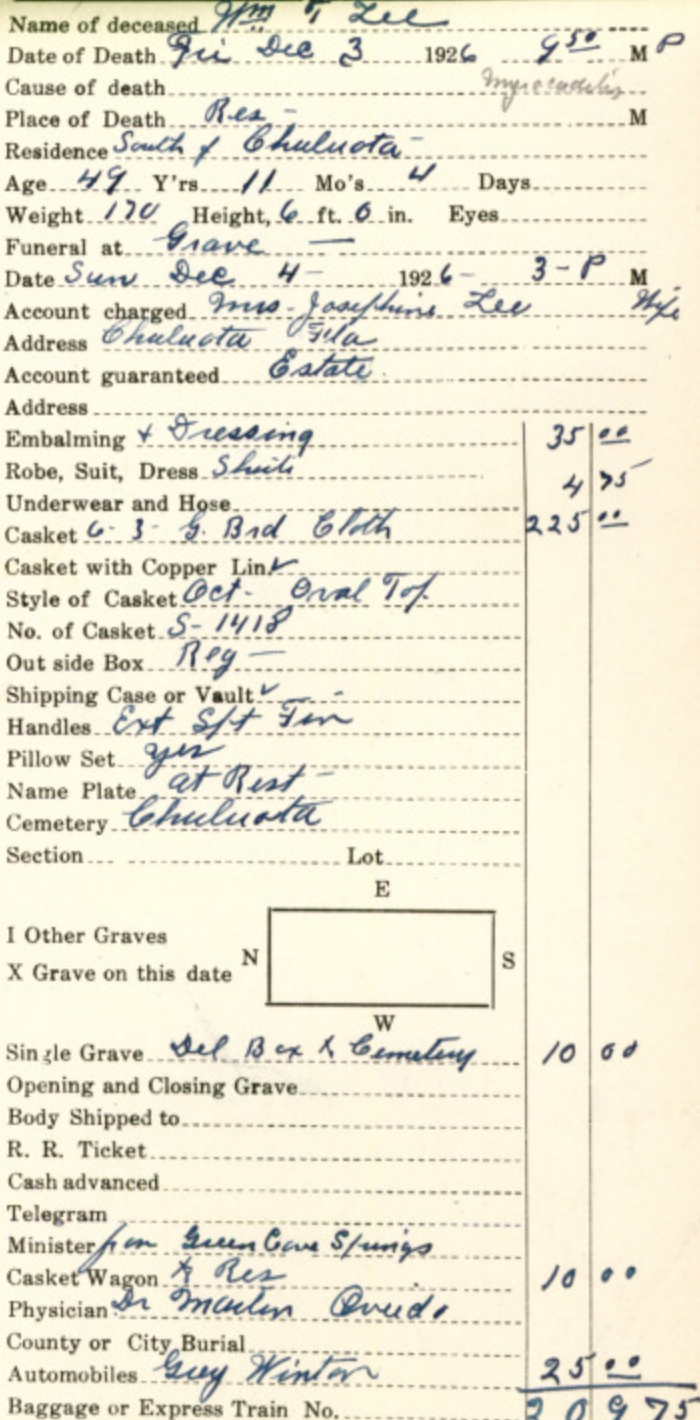 Name of deceased Wm T Lee
Date of Death Fri Dec 3 1926 9 50 M P
Cause of death Myrocarditis
Place of Death Res - M
Residence South of Chuluota -
Age 49 Y'rs 11 Mo's 4 Days
Weight 170 Height, 6 ft. 0 in. Eyes
Funeral at Grave —
Date Sun Dec 4 - 1926 - 3 - P M
Account charged Mrs - Josephine Lee Wife
Address Chuluota Fla
Account guaranteed Estate
Address
Embalming + Dressing 35 00
Robe, Suit, Dress 4 75
Underwear and Hose
Casket 6 - 3 - G. Brd Cloth 225 00
Casket with Copper Lin ✓
Style of Casket Oct - Oval Top
No. of Casket S - 1418
Out side Box Reg —
Shipping Case or Vault ✓ -
Handles Ext
Pillow Set yes
Name Plate at Rest -
Cemetery Chuluota
Section Lot
E
I Other Graves
N S
X Grave on this date
W
Single Grave Del Box to Cemetery 10 00
Opening and Closing Grave
Body Shipped to
R. R. Ticket
Cash advanced
Telegram
Minister from Green Cove Springs
Casket Wagon to Res 10 00
Physician Dr Martin Oviedo
County or City Burial
Automobiles Grey Winton 25 00
Baggage or Express Train No. 309 75